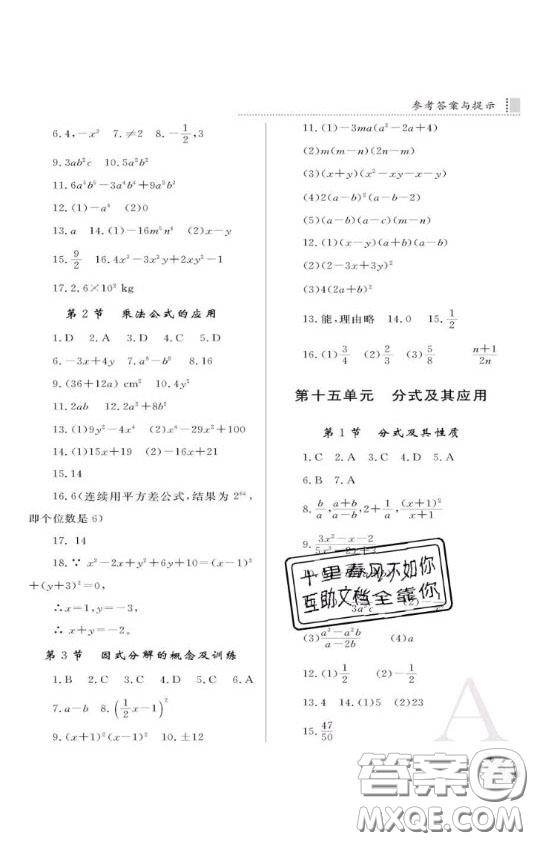 参考答案与提示
6.4,-x³ 7.≠2 8.-1/2,3
9.3ab²c 10.5a²b²
12.(1)-a⁴ (2)0
13.a 14.(1)-16m⁵n⁴ (2)x-y
15.9/2 16.4x³-3x²y+2xy²-1
17.2.6×10³ kg
第2节 乘法公式的应用
1.D 2.A 3.D 4.B 5.D
6.-3x+4y 7.a⁸-b⁸ 8.16
9.(36+12a) cm² 10.4y²
11.2ab 12.2a²+b²
13.(1)9y²-4x⁴ (2)x⁴-29x²+100
14.(1)15x+19 (2)-16x+21
15.14
16.6(连续用平方差公式,结果为2⁶⁴,
即个位数是6)
17. 14
18.∵ x²-2x+y²+6y+10=(x-1)²
+(y+3)²=0,
∴x=1,y=-3.
∴ x+y=-2.
第3节 因式分解的概念及训练
1.B 2.C 3.B 4.D 5.C 6.A
7.a-b 8.(1/2x-1)²
9.(x+1)²(x-1)² 10.±12
11.(1)-3ma(a²-2a+4)
(2)m(m-n)(2n-m)
(3)(x+y)(x²-xy-x-y)
(4)2(a-b)²(a-b-2)
(5)(a-b)(a-c)(m-n)
12.(1)(x-y)(a+b)(a-b)
(2)(2-3x)(2+3x)
(3)4(2a+b)²
13.能,理由略 14.0 15.1/2
16.(1)3/4 (2)2/3 (3)5/8 n+1/2n
第十五单元 分式及其应用
第1节 分式及其性质
1.C 2.A 3.C 4.C 5.A
6.B 7.A
8.b/a,a+b/a-b,2+1/a,(x+1)²/x+1
9.3x²-x-2
十里春风不如你
互助文档全靠你
(3)a²-a²b/a-2b (4)a
12.(1)1/2 (2)-1/2
13.4 14.(1)5 (2)23
15.47/50
A
答案卷
MXQE.COM